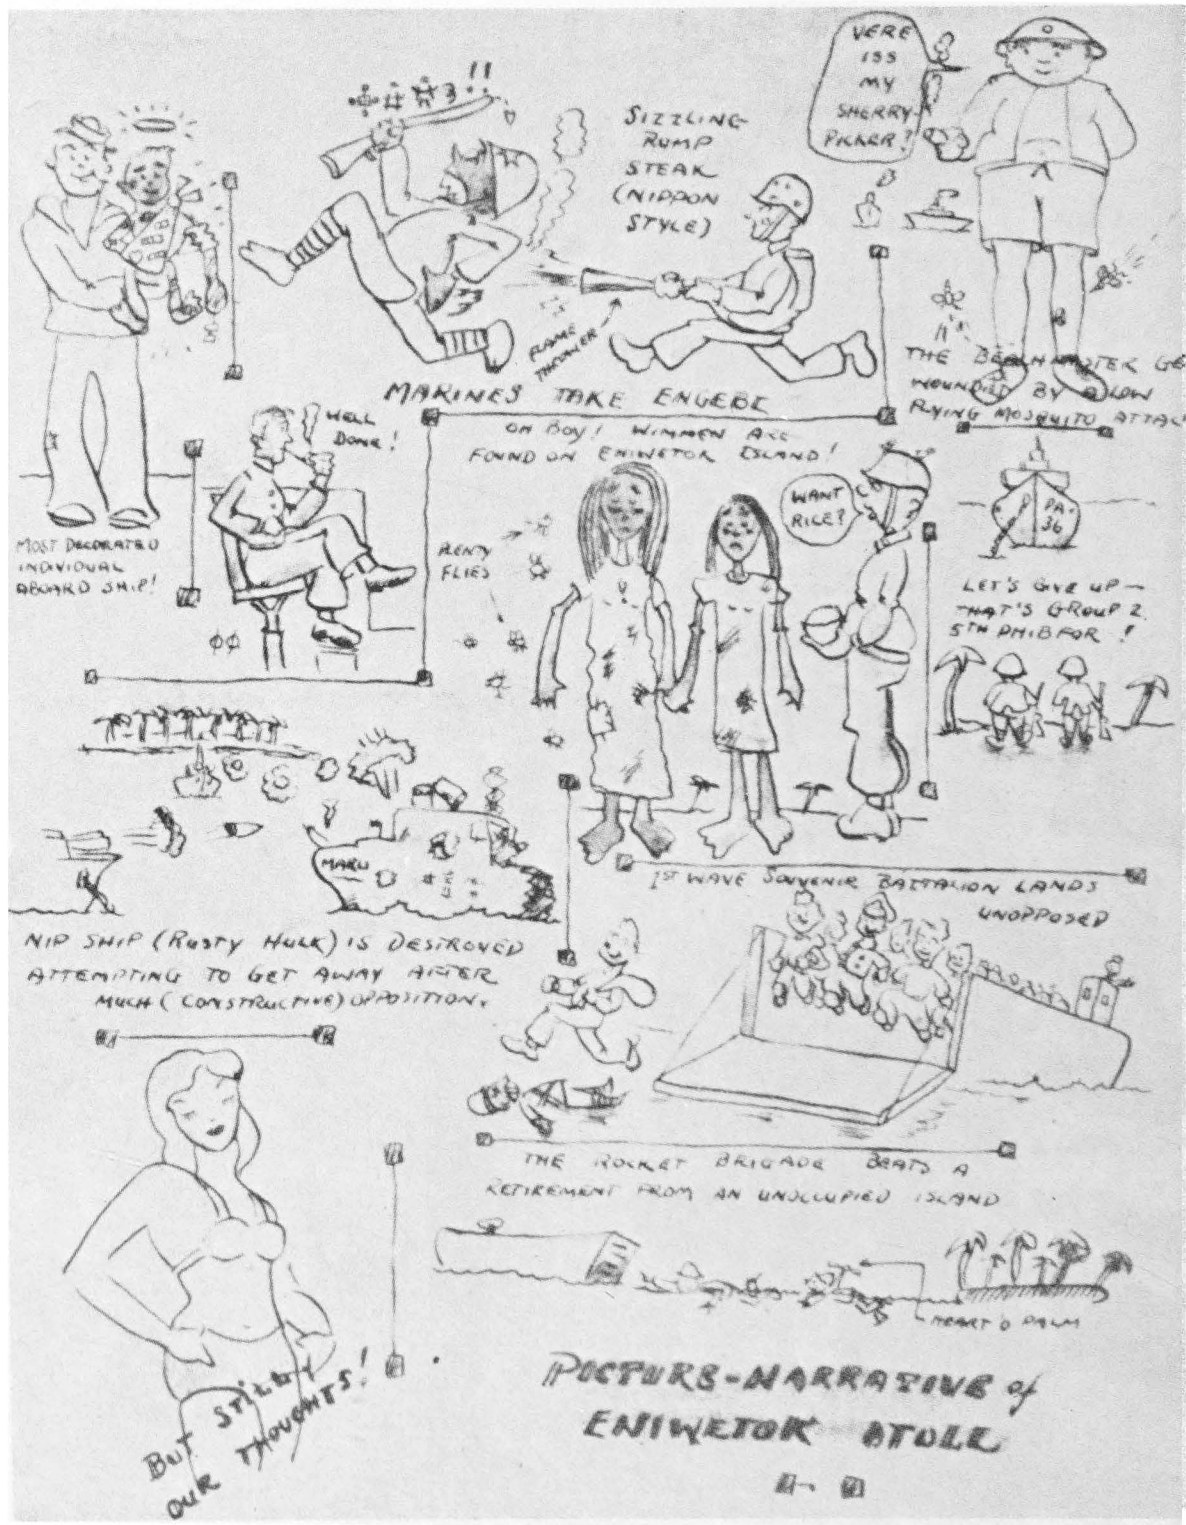 VERE
ISS
MY
SHERRY-
PICKER?
SIZZLING
RUMP
STEAK
(NIPPON
STYLE)
FLAME
THROWER
MARINES TAKE ENGEBI
THE BEACHMASTER GE
WOUNDED BY A LOW
FLYING MOSQUITO ATTAC
MOST DECORATED
INDIVIDUAL
ABOARD SHIP!
WELL
DONE!
OH BOY! WIMMEN ARE
FOUND ON ENIWETOK ISLAND!
PLENTY
FLIES
WANT
RICE?
PA-
36
LET'S GIVE UP —
THAT'S GROUP 2
5TH PHIBFOR!
MARU
NIP SHIP (RUSTY HULK) IS DESTROYED
ATTEMPTING TO GET AWAY AFTER
MUCH (CONSTRUCTIVE) OPPOSITION.
1ST WAVE SOUVENIR BATTALION LANDS
UNOPPOSED
THE ROCKET BRIGADE BEATS A
RETIREMENT FROM AN UNOCCUPIED ISLAND
HEART O PALM
BUT STILL IN
OUR THOUGHTS!
PICTURE-NARRATIVE of
ENIWETOK ATOLL